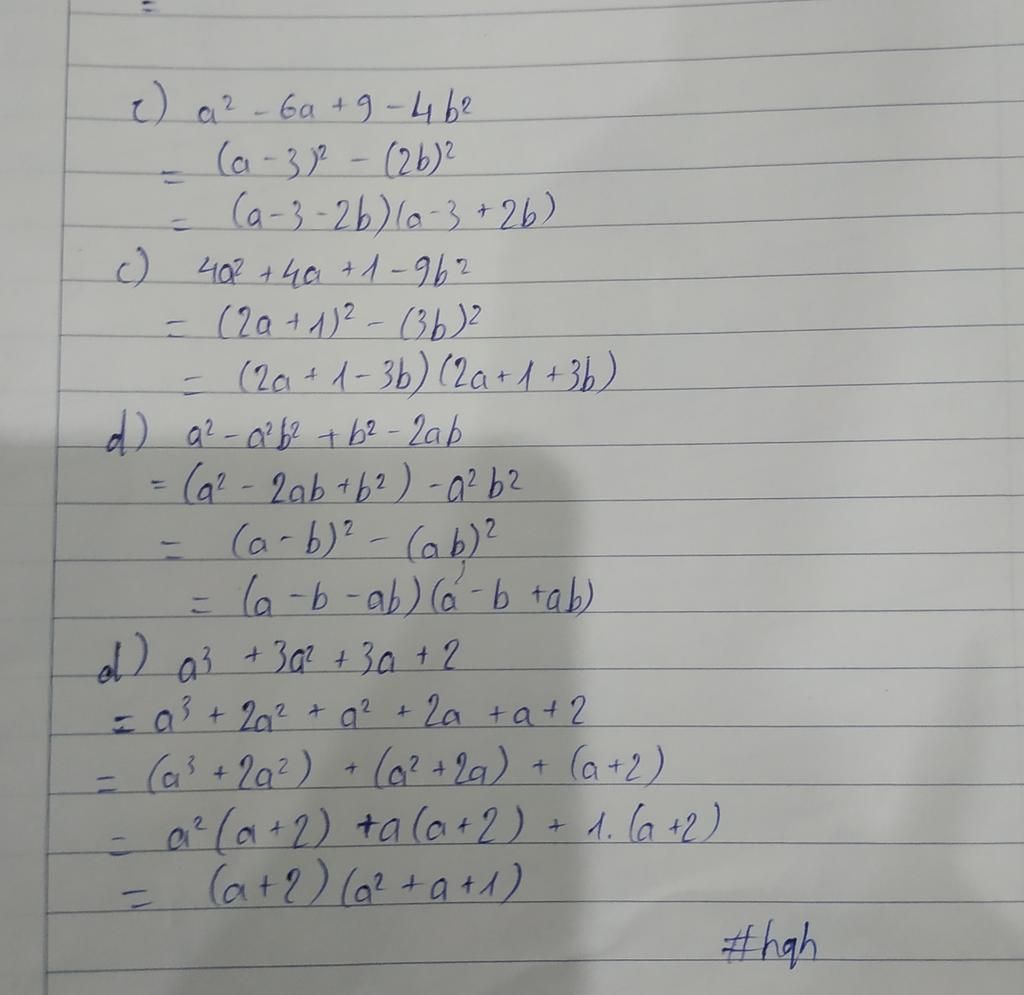 c) a² - 6a + 9 - 4b²
= (a - 3)² - (2b)²
= (a - 3 - 2b)(a - 3 + 2b)
c) 4a² + 4a + 1 - 9b²
= (2a + 1)² - (3b)²
= (2a + 1 - 3b)(2a + 1 + 3b)
d) a² - a²b² + b² - 2ab
= (a² - 2ab + b²) - a²b²
= (a - b)² - (ab)²
= (a - b - ab)(a - b + ab)
d) a³ + 3a² + 3a + 2
= a³ + 2a² + a² + 2a + a + 2
= (a³ + 2a²) + (a² + 2a) + (a + 2)
= a²(a + 2) + a(a + 2) + 1.(a + 2)
= (a + 2)(a² + a + 1)
#hqh